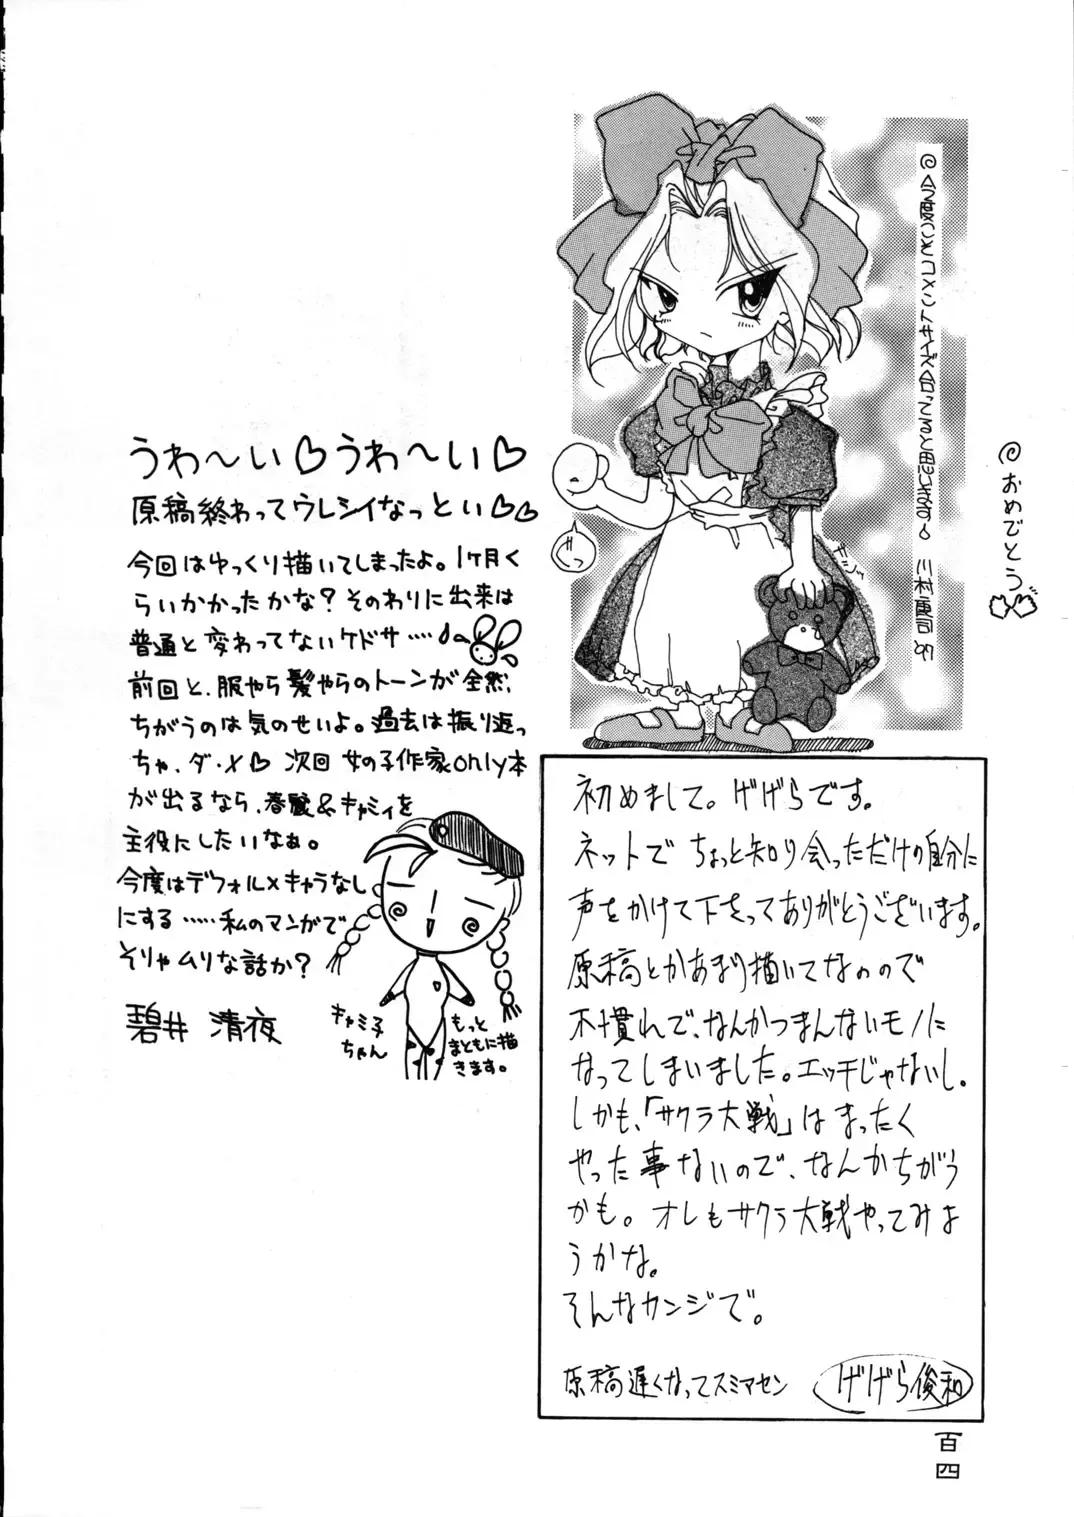 @今度こそコメントサイズ合ってると思います。 川村

@おめでとう

うわ〜い♡うわ〜い♡
原稿終わってウレシイなっとい♡♡
今回はゆっくり描いてしまったよ。1ヶ月く
らいかかったかな?そのわりに出来は
普通と変わってないケドサ……
前回と、服やら髪やらのトーンが全然、
ちがうのは気のせいよ。過去は振り返っ
ちゃ、ダ・メ♡ 次回 女の子作家only本
が出るなら、春麗&キャミィを
主役にしたいなぁ。
今度はデフォルメキャラなし
にする……私のマンガで
そりゃムリな話か?
碧井 清夜

キャミ子
ちゃん

もっと
まともに描
きます。

初めまして。げげらです。
ネットで ちょっと知り会っただけの自分に
声をかけて下さってありがとうございます。
原稿とかあまり描いてなのので
不慣れで、なんかつまんないモノに
なってしまいました。エッチじゃないし。
しかも、「サクラ大戦」はまったく
やった事ないので、なんかちがう
かも。オレもサクラ大戦やってみよ
うかな。
そんなカンジで。
原稿遅くなってスミマセン
げげら俊和

百
四